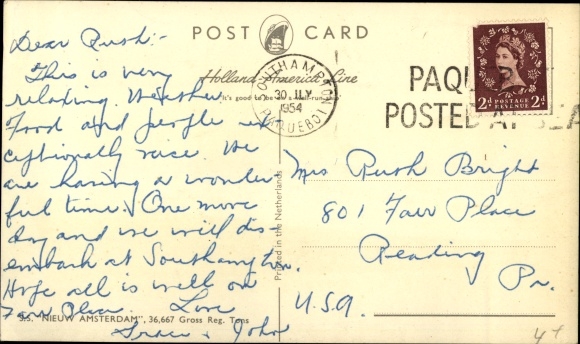 POST CARD
Dear Rush:-
This is very
relaxing. Weather
Food and people ex
ceptionally nice. We
are having a wonder
ful time. One more
day and we will dis-
embark at Southampton.
Hope all is well on
Farr Place. Love
Grace & John
Holland-America Line
"It's good to be on a well-run ship"
S.S. "NIEUW AMSTERDAM", 36,667 Gross Reg. Tons
Printed in the Netherlands
SOUTHAMPTON
30 JLY
1954
PAQUEBOT
PAQU
POSTED AT SEA
2d POSTAGE REVENUE 2d
Mrs Rush Bright
801 Farr Place
Reading
Pa.
U.S.A.